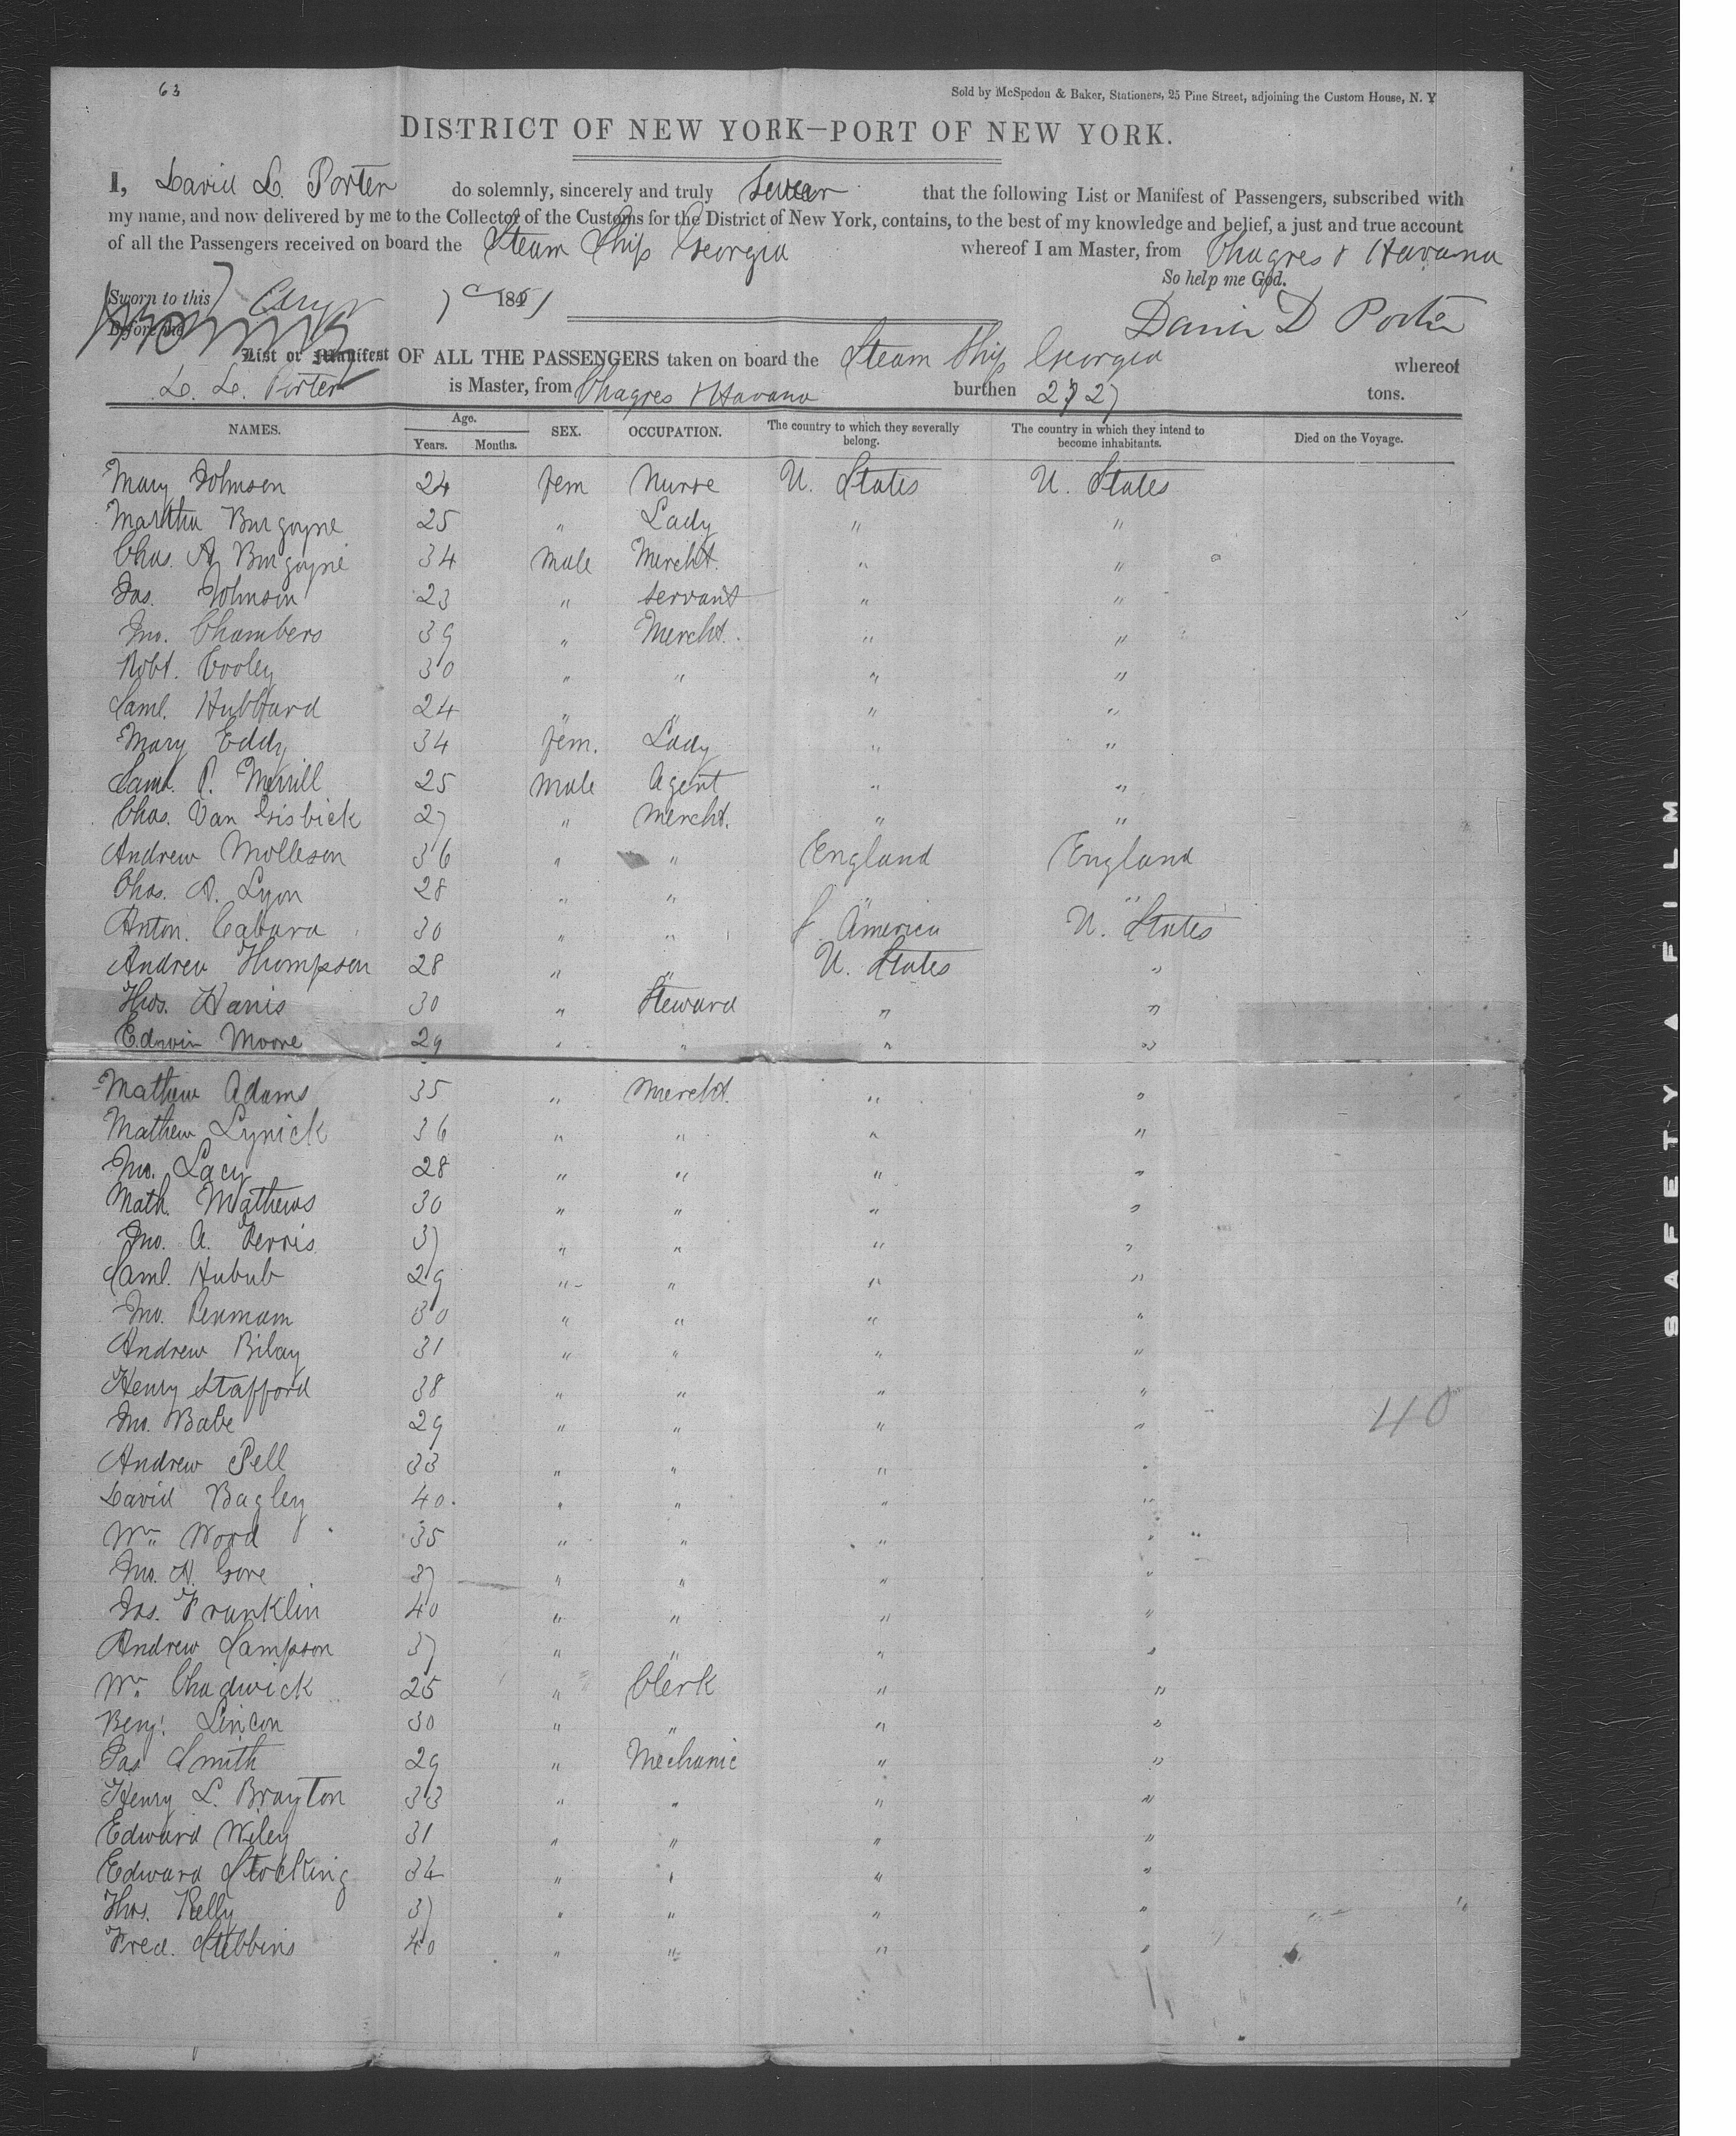 63
Sold by McSpedon & Baker, Stationers, 25 Pine Street, adjoining the Custom House, N. Y
DISTRICT OF NEW YORK—PORT OF NEW YORK.
I, David D. Porter do solemnly, sincerely and truly swear that the following List or Manifest of Passengers, subscribed with
my name, and now delivered by me to the Collector of the Customs for the District of New York, contains, to the best of my knowledge and belief, a just and true account
of all the Passengers received on board the Steam Ship Georgia whereof I am Master, from Chagres & Havana
So help me God.
Sworn to this 1851
Before me
David D Porter
List or Manifest OF ALL THE PASSENGERS taken on board the Steam Ship Georgia whereof
D. D. Porter is Master, from Chagres & Havana burthen 2727 tons.
NAMES. Age. Years. Months. SEX. OCCUPATION. The country to which they severally belong. The country in which they intend to become inhabitants. Died on the Voyage.
Mary Johnson 24 fem Nurse U. States U. States
Martha Burgoyne 25 " Lady " "
Chas. A Burgoyne 34 male Mercht. " "
Jas. Johnson 23 " servant " "
Jno. Chambers 39 " Mercht. " "
Robt. Cooley 30 " " " "
Saml. Hubbard 24 " " " "
Mary Eddy 34 fem. Lady " "
Saml. P. Merrill 25 male Agent " "
Chas. Van 27 " mercht. " "
Andrew Molleson 36 " " England England
Chas. A. Lyon 28 " " " "
Anton. Cabara 30 " " S. America U. States
Andrew Thompson 28 " " U. States "
Thos. Hanis 30 " Steward " "
Edwin Moore 29 " " " "
Mathew Adams 35 " mercht. " "
Mathew Lynick 36 " " " "
Jno. Lacy 28 " " " "
Math. Mathews 30 " " " "
Jno. A. Ferris 37 " " " "
Saml. Hubub 29 " " " "
Jno. Penmam 30 " " " "
Andrew Bilay 31 " " " "
Henry Stafford 38 " " " "
Jno. Babe 29 " " " "
40
Andrew Pell 33 " " " "
David Bagley 40. " " " "
Wm Word 35 " " " "
Jno. A. Gore 37 " " " "
Jas. Franklin 40 " " " "
Andrew Sampson 37 " " " "
Wm. Chadwick 25 " Clerk " "
Benj. Lincon 30 " " " "
Jas Smith 29 " Mechanic " "
Henry L. Brayton 33 " " " "
Edward Wiley 31 " " " "
Edward Stocking 34 " " " "
Thos. Kelly 37 " " " "
Fred. Stibbins 40 " " " "
SAFETY A FILM